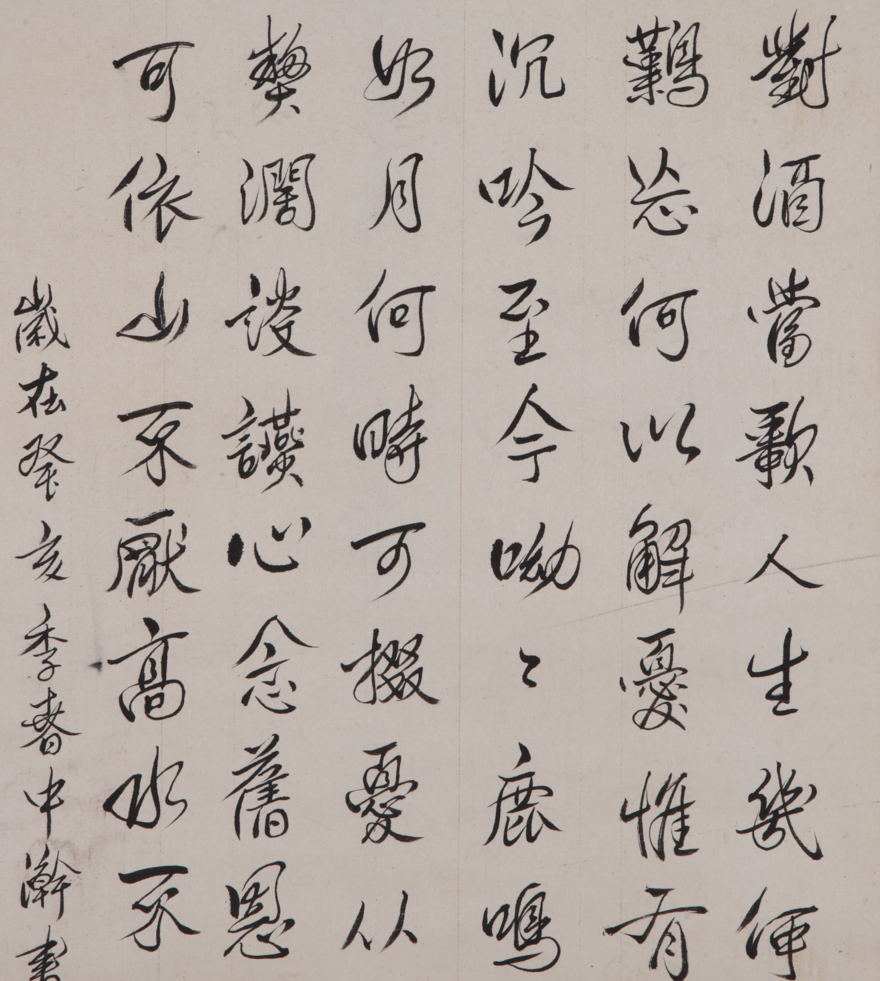 對酒當歌人生幾何
難忘何以解憂惟有
沉吟至今呦〻鹿鳴
如月何時可掇憂從
契濶談讌心念舊恩
可依山不厭高水不
歲在癸亥季春中澣書